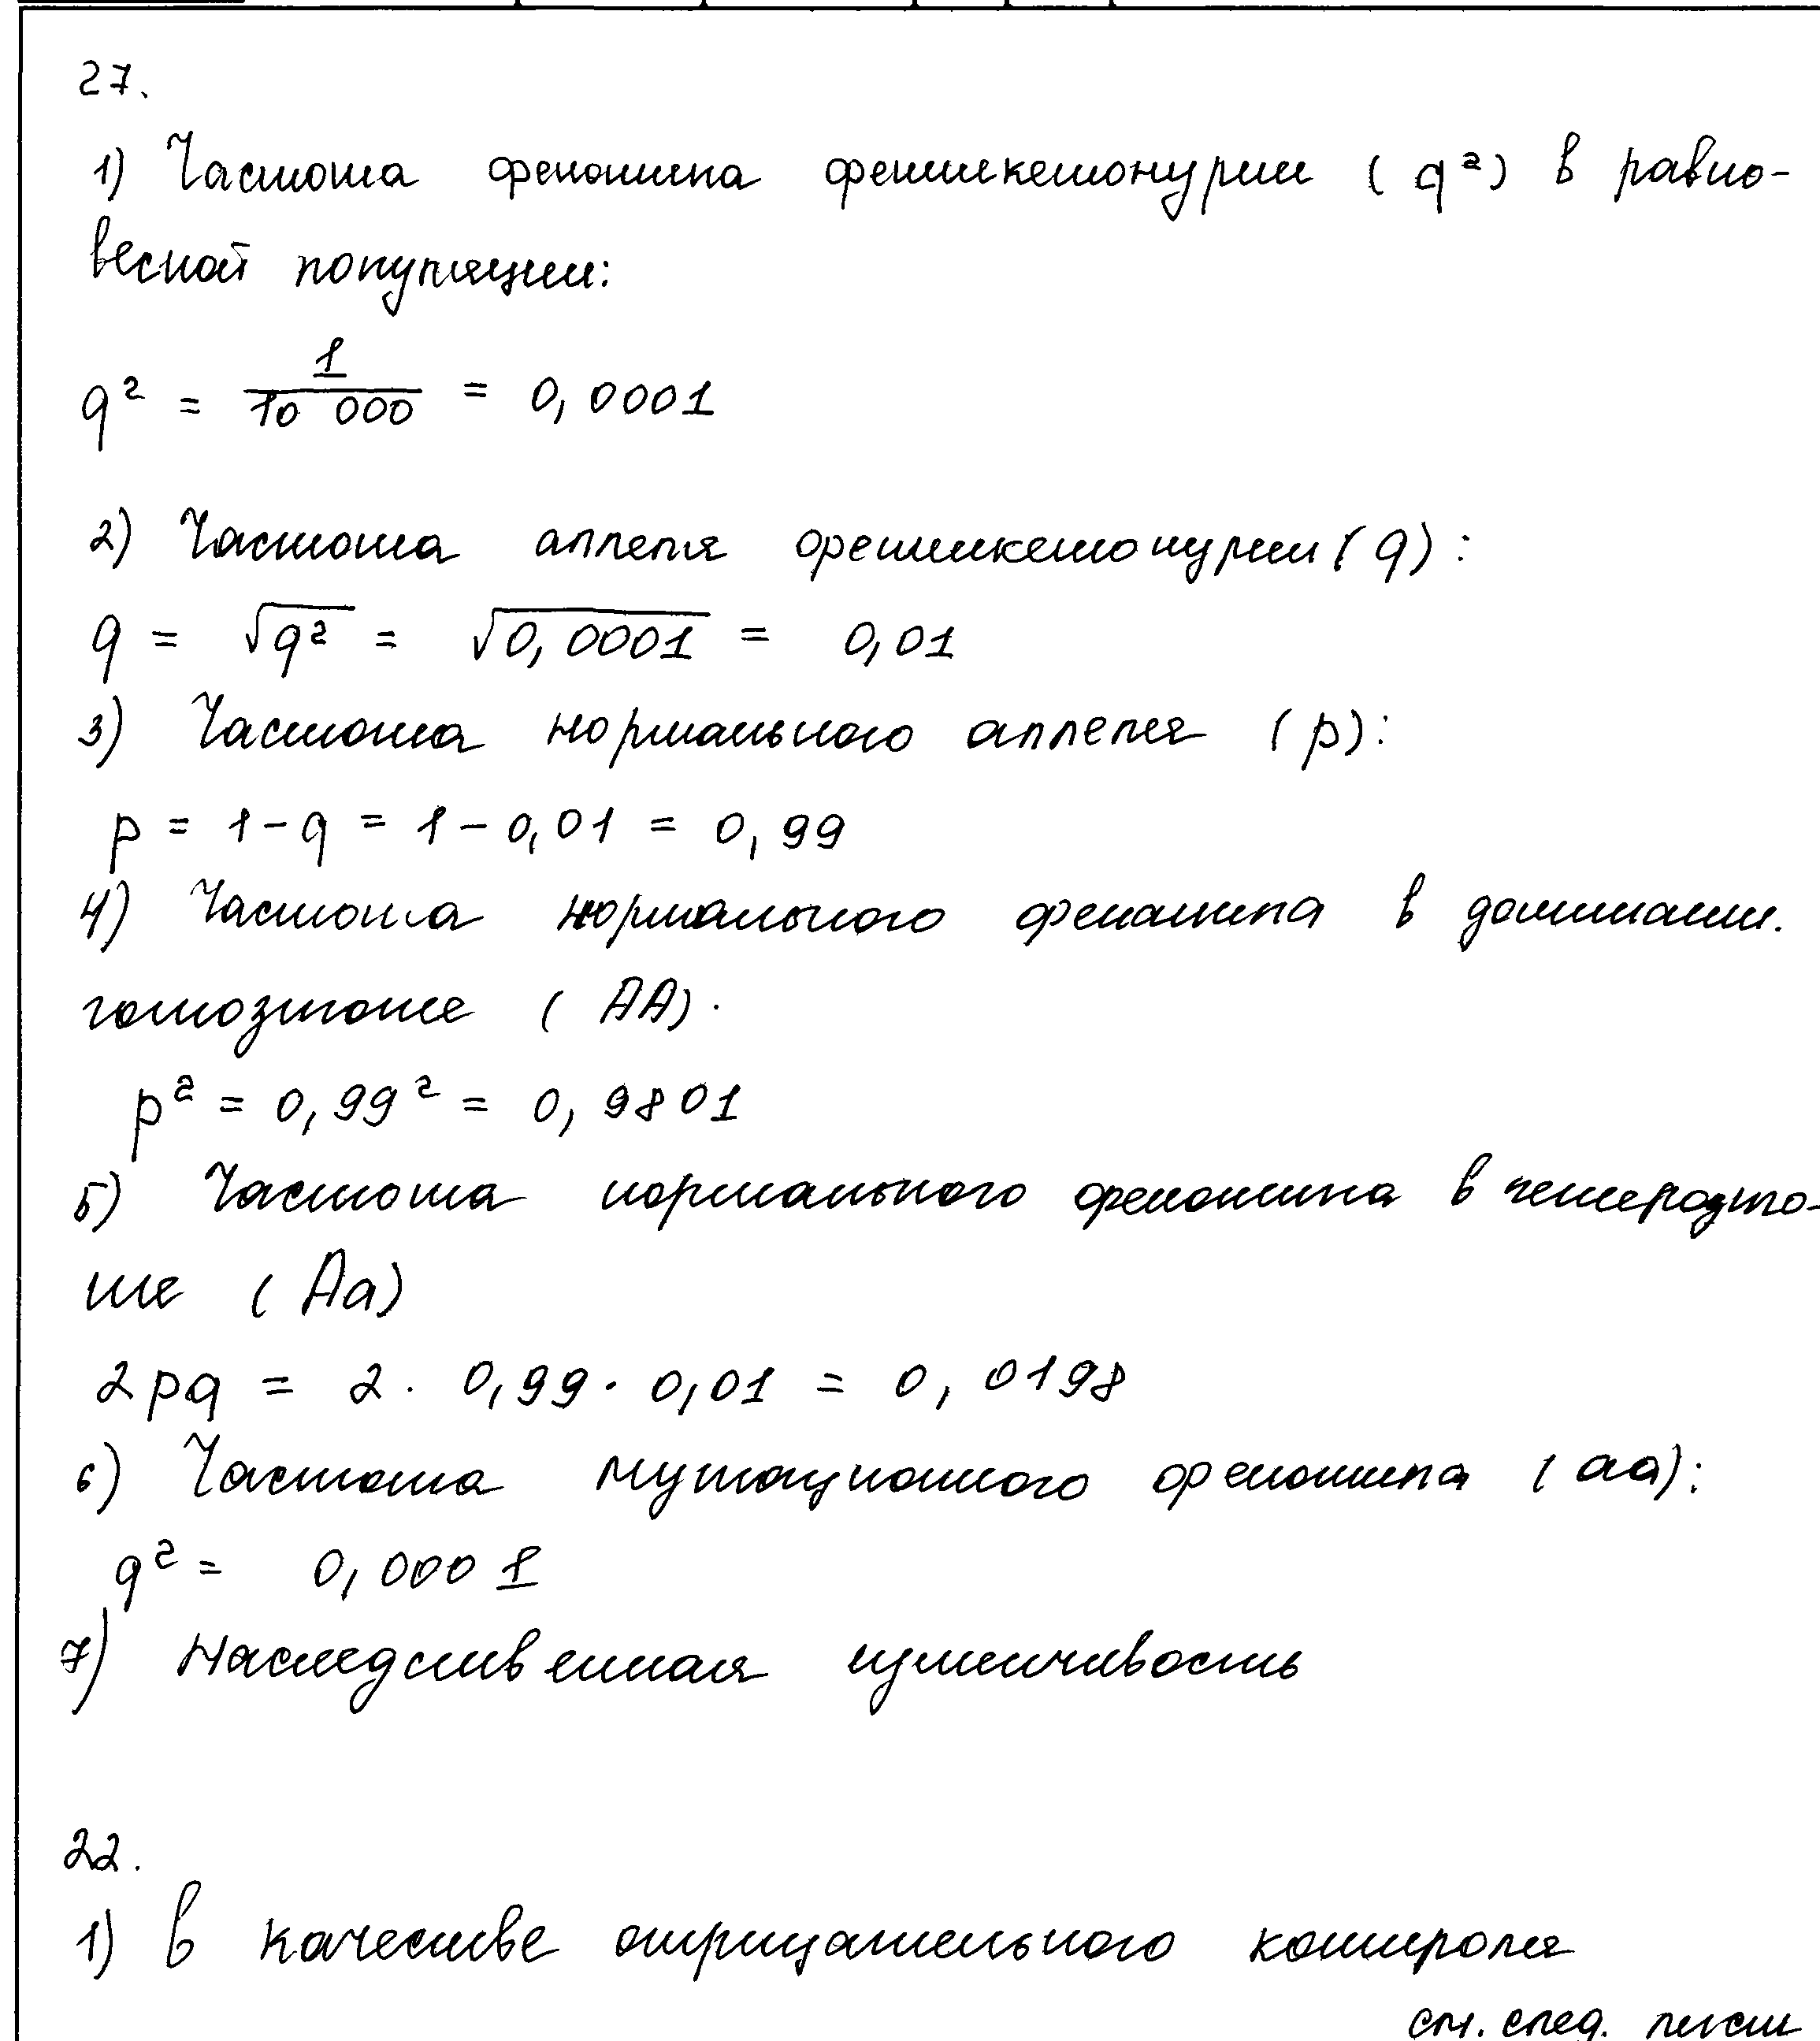 27.
1) Частота фенотипа фенилкетонурии (q²) в равно-
весной популяции:
q² = 1/10 000 = 0,0001
2) Частота аллеля фенилкетонурии (q):
q = √q² = √0,0001 = 0,01
3) Частота нормального аллеля (p):
p = 1 - q = 1 - 0,01 = 0,99
4) Частота нормального фенотипа в доминант.
гомозиготе (AA).
p² = 0,99² = 0,9801
5) Частота нормального фенотипа в гетерозиго-
те (Aa)
2pq = 2 · 0,99 · 0,01 = 0,0198
6) Частота мутационного фенотипа (aa):
q² = 0,0001
7) Наследственная изменчивость
22.
1) В качестве отрицательного контроля
см. след. лист